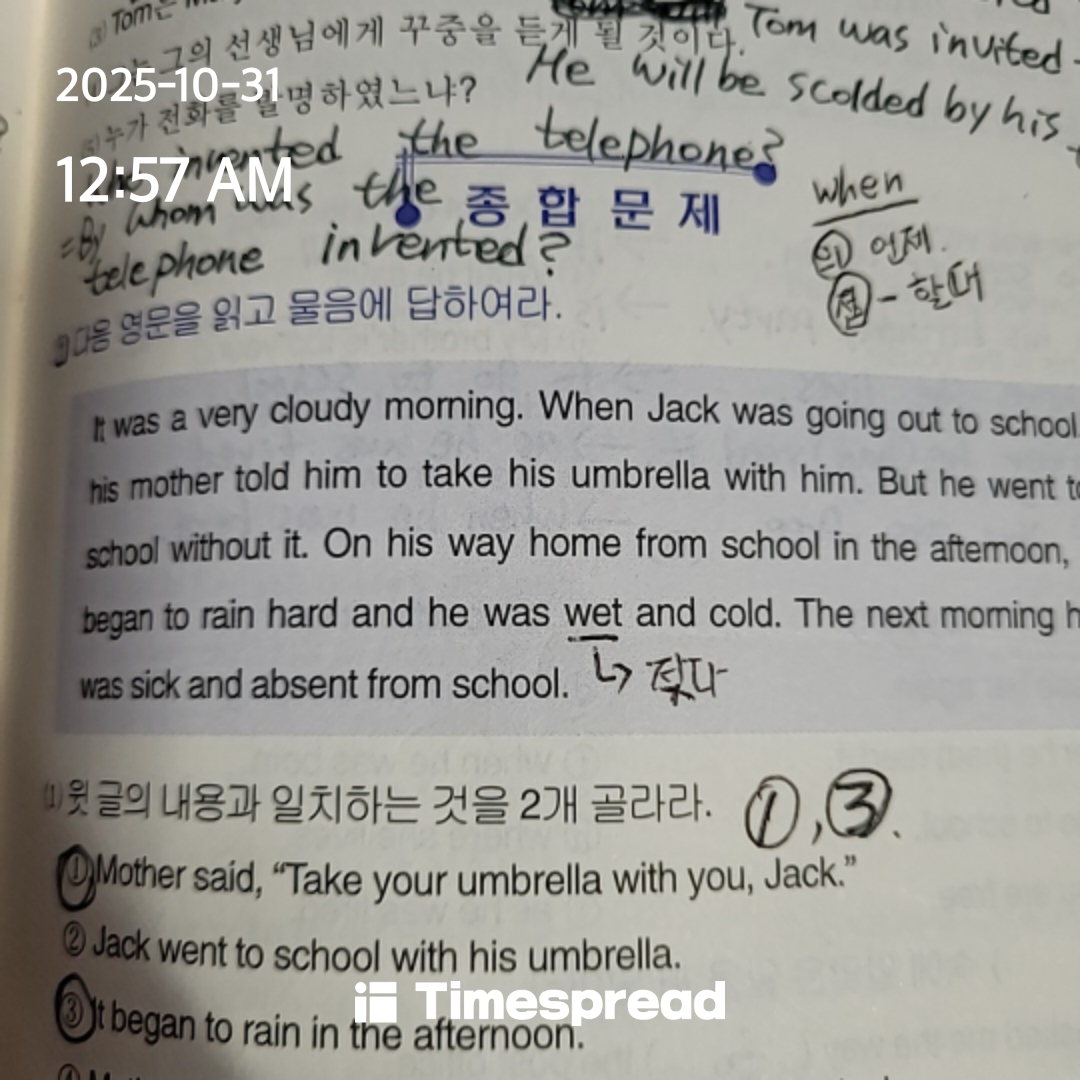 (3) Tom은
그의 선생님에게 꾸중을 듣게 될 것이다. Tom was invited
2025-10-31
He will be scolded by his
누가 전화를 발명하였느냐?
invented the telephone?
12:57 AM
=By whom was the
종합문제
when
telephone invented?
의 언제.
다음 영문을 읽고 물음에 답하여라.
접 - 할 때
It was a very cloudy morning. When Jack was going out to school,
his mother told him to take his umbrella with him. But he went to
school without it. On his way home from school in the afternoon,
began to rain hard and he was wet and cold. The next morning h
was sick and absent from school.
↳ 젖다
(1) 윗 글의 내용과 일치하는 것을 2개 골라라. ①, ③.
① Mother said, “Take your umbrella with you, Jack.”
② Jack went to school with his umbrella.
Timespread
③ It began to rain in the afternoon.